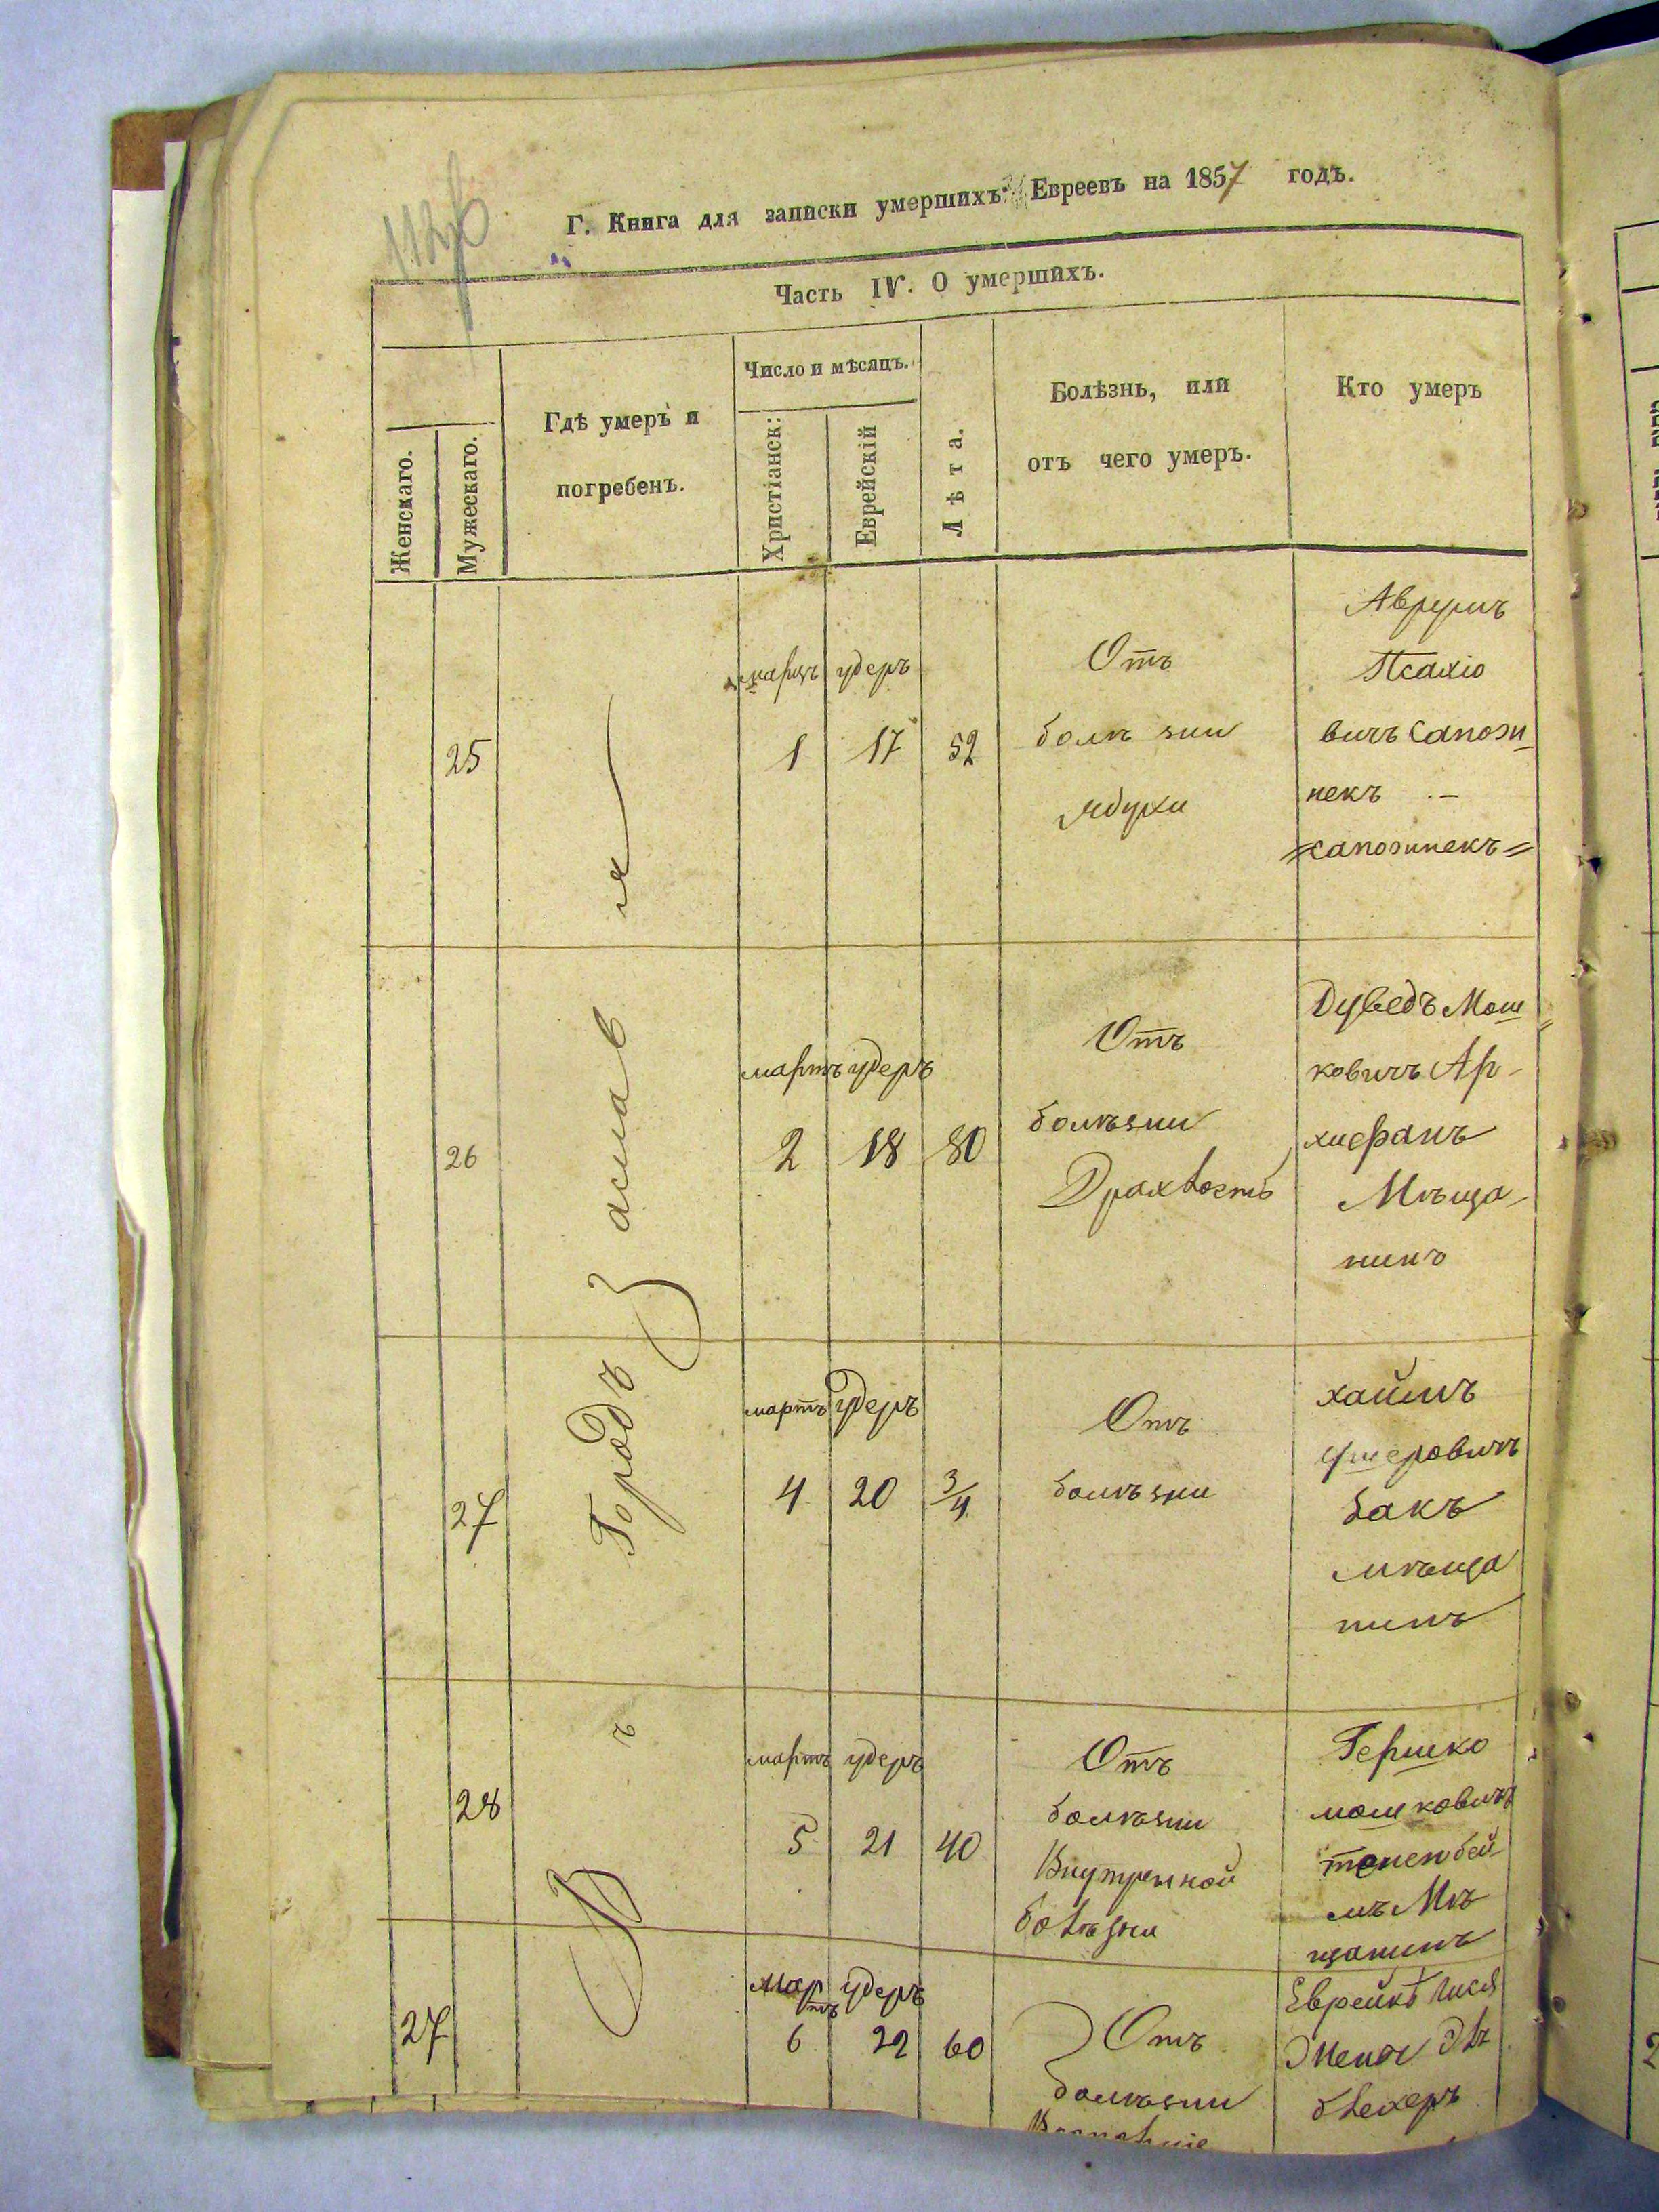 Г. Книга для записки умершихъ Евреевъ на 1857 годъ.
Часть IV. О умершихъ.
Женскаго.
Мужескаго.
Гдѣ умеръ и
погребенъ.
Число и мѣсяцъ.
Христіанск:
Еврейскій
Лѣта.
Болѣзнь, или
отъ чего умеръ.
Кто умеръ
Въ Городъ Заслав
25
мартъ удеръ
1 17 52
Отъ
болѣзни
Аврумъ
Псахіо
вичъ Сапож
некъ
сапожнекъ
26
мартъ удеръ
2 18 80
Отъ
болѣзни
Драхвость
Дуведъ Мош
ковичъ Ар
Мѣща
нинъ
27
мартъ удеръ
4 20 3/4
Отъ
болѣзни
хаимъ
ушеровичъ
бакъ
мѣща
нинъ
28
мартъ удеръ
5 21 40
Отъ
болѣзни
Внутреной
болѣзни
Гершко
мошковичъ
мъ Мѣ
щанинъ
27
мартъ удеръ
6 22 60
Отъ
болѣзни
Еврейка